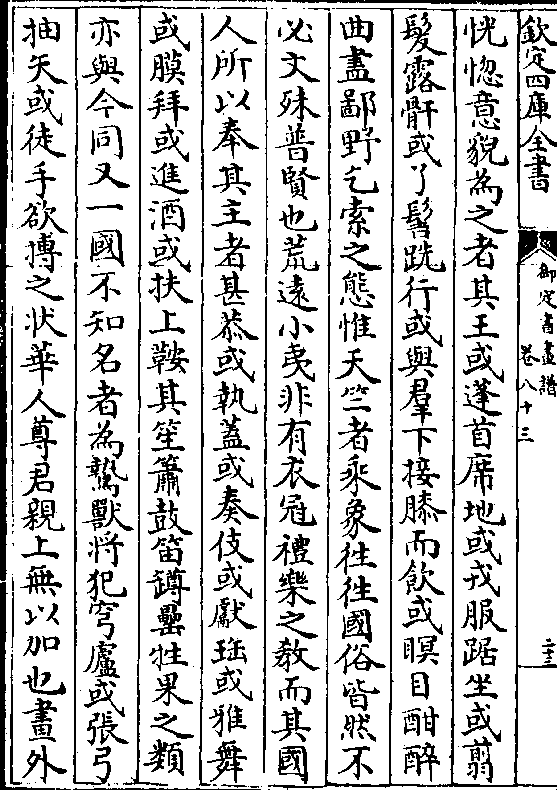 欽定四庫全書
御定書畫譜
卷八十三
二十三
恍惚意貌為之者其王或蓬首席地或戎服踞坐或翦
髮露骭或了髻跣行或與羣下接膝而飲或瞑目酣醉
曲盡鄙野乞索之態惟天竺者乘象徃徃國俗皆然不
必文殊普賢也荒遠小夷非有衣冠禮樂之教而其國
人所以奉其主者甚恭或執蓋或奏伎或獻琺或雅舞
或膜拜或進酒或扶上鞍其笙簫鼓笛罇罍牲果之類
亦與今同又一國不知名者為鷙獸將犯穹廬或張弓
抽矢或徒手欲搏之状華人尊君親上無以加也畫外